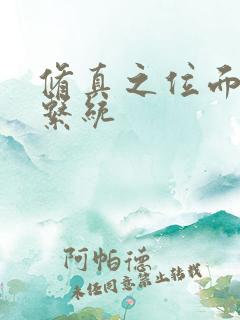 脩真之位而
繫統
阿帕德
未任同意禁止转载